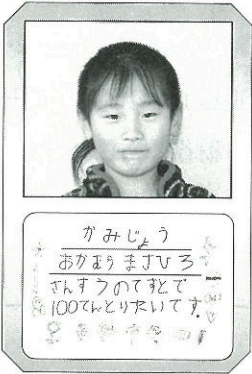 かみじょう
おかむら まさひろ
さんすうのてすとで
100てんとりたいです。